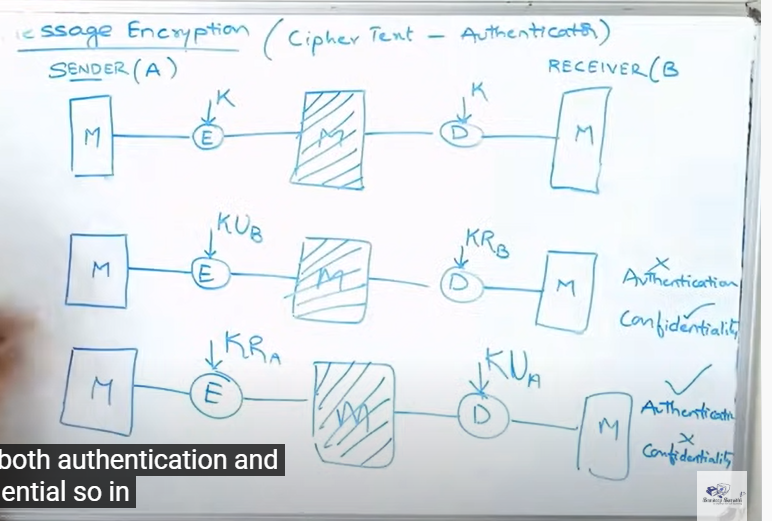 essage Encryption (Cipher Text - Authenticator)
SENDER (A)
RECEIVER (B
K
K
M
E
M
D
M
KUB
KRB
M
E
M
D
M
Authentication
Confidentiality
KRA
KUA
M
E
M
D
M
Authenticatn
Confidentiality
both authentication and
ential so in